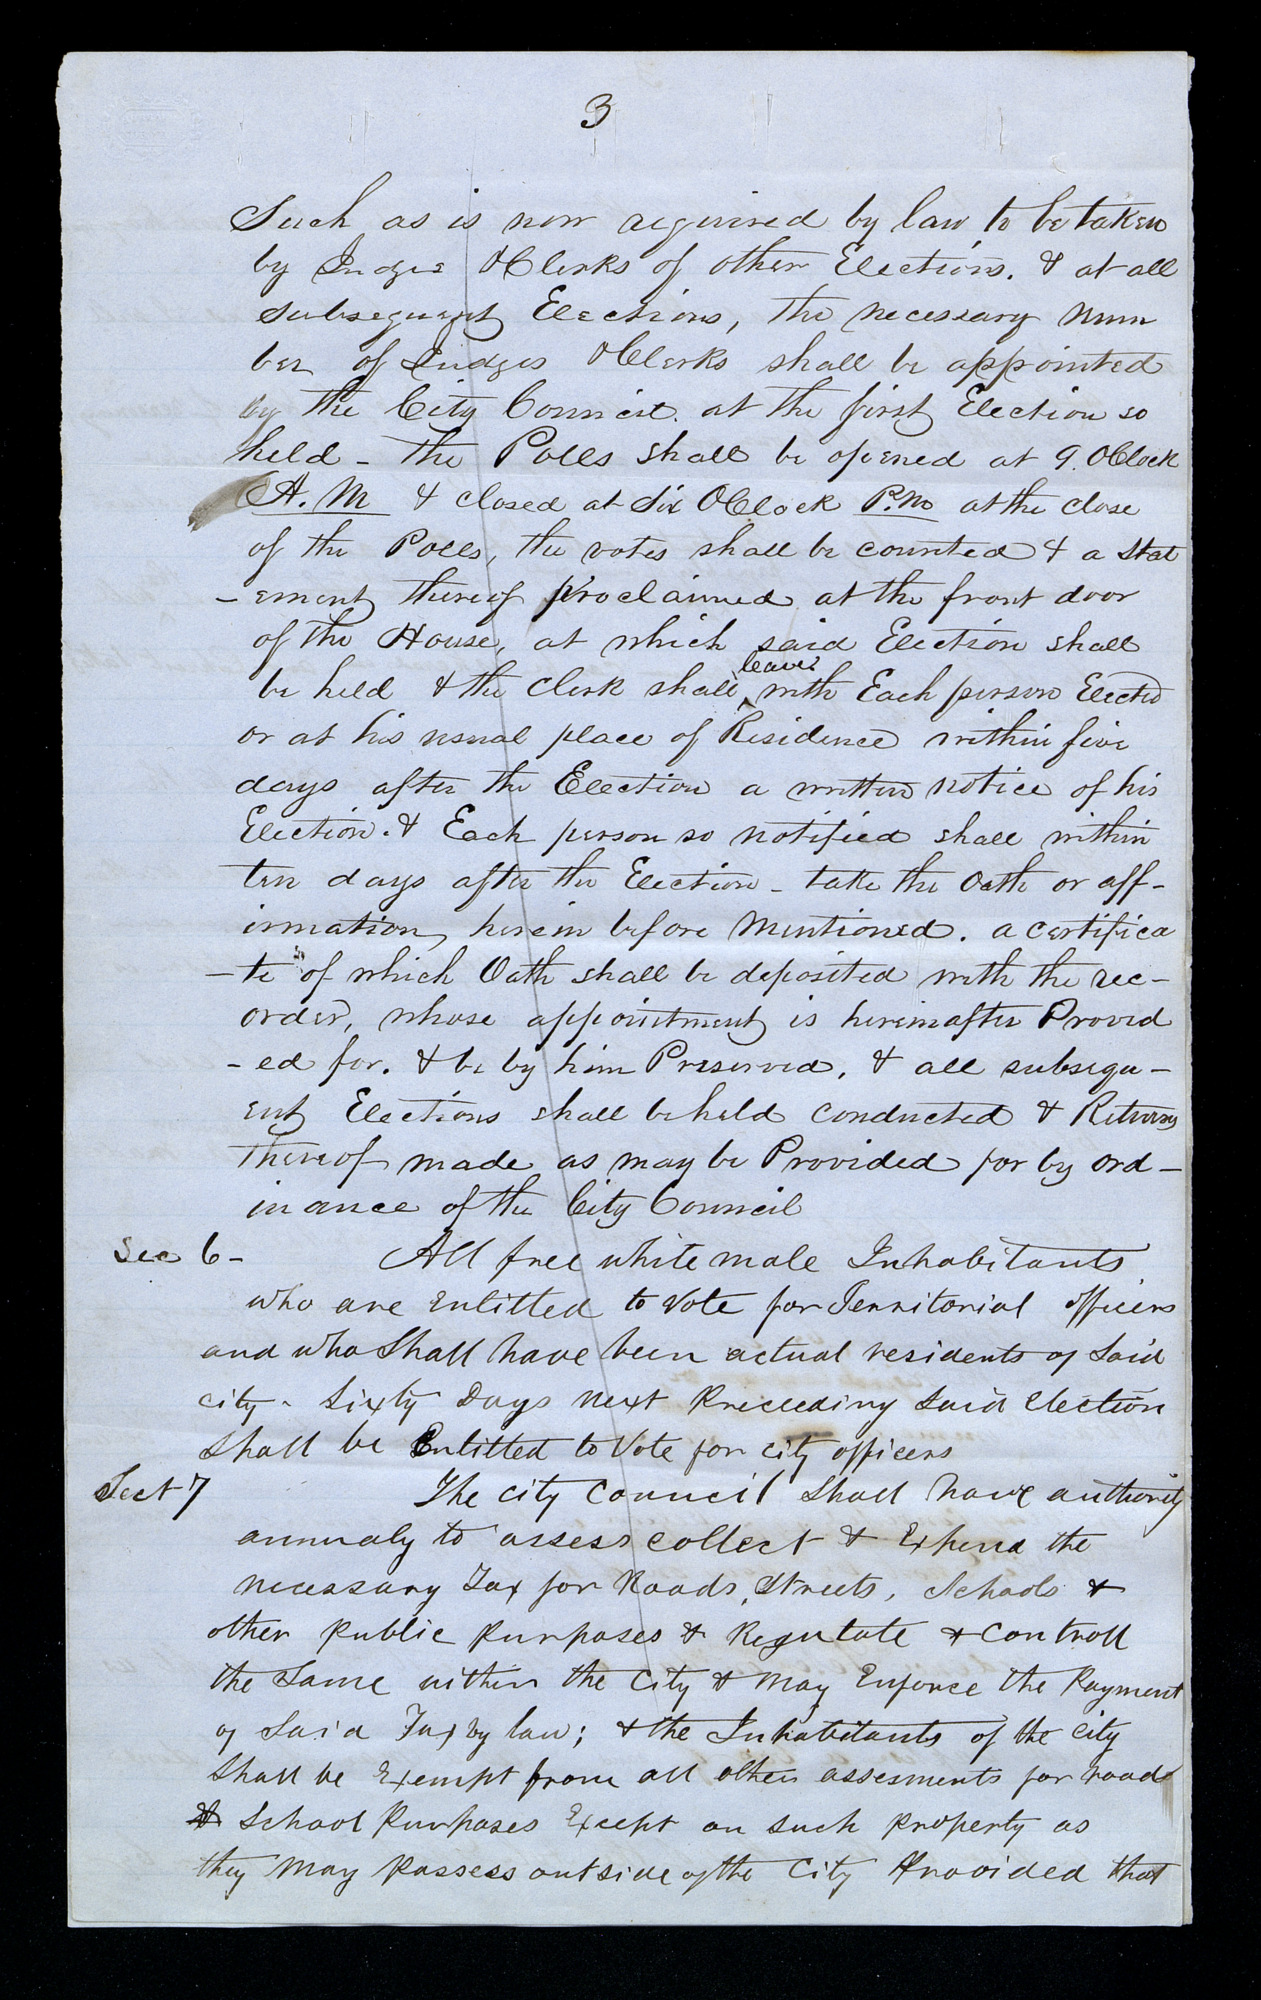 3
Such as is now required by law to be taken
by Judges & Clerks of other Elections. & at all
subsequent Elections, the necessary num
ber of Judges & Clerks shall be appointed
by the City Council. at the first Election so
held - the Polls shall be opened at 9. OClock
A. M & closed at Six OClock P.M at the close
of the Polls, the votes shall be counted & a stat
- ement thereof proclaimed at the front door
of the House, at which said Election shall
leave
be held & the Clerk shall with Each person Elected
or at his usual place of Residence within five
days after the Election a written notice of his
Election. & Each person so notified shall within
ten days after the Election - take the Oath or aff-
irmation, herein before Mentioned. a certifica
- te of which Oath shall be deposited with the rec-
order, whose appointment is hereinafter Provid
- ed for. & be by him Preserved, & all subsequ-
ent Elections shall be held conducted & Returns
thereof made as may be Provided for by ord-
inance of the City Council
Sec 6 - All free white male Inhabitants
who are Entitled to Vote for Territorial officers
and who Shall have been actual residents of Said
city - Sixty Days next Preceeding Said Election
Shall be Entitled to Vote for city officers
Sect 7 The city Council Shall have authority
annualy to assess collect & Expend the
necessary Tax for Roads, Streets, Schools &
other Public Purposes & Regulate & Controll
the Same within the City & May Enforce the Payment
of Said Tax by law; & the Inhabitants of the city
Shall be Exempt from all other assesments for road
& School Purposes Except on such Property as
they May Possess outside of the City Provided that